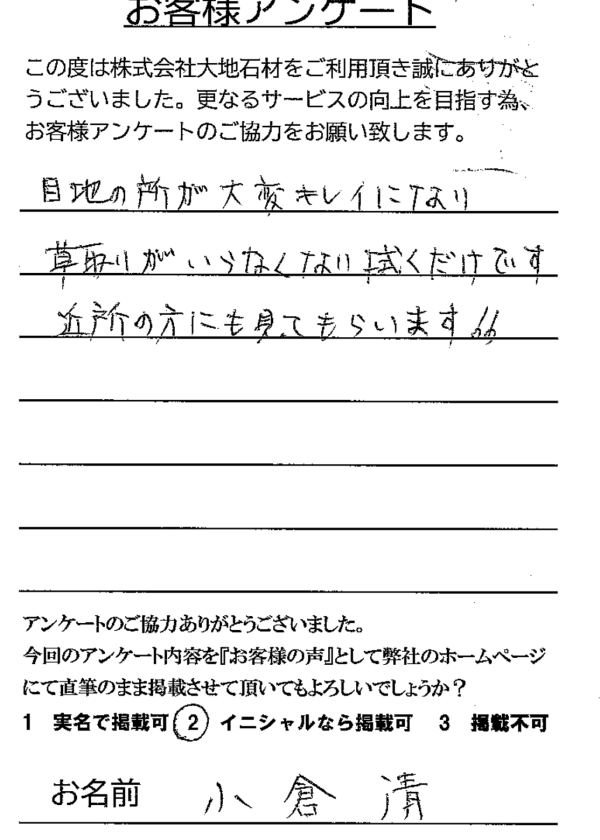 お客様アンケート
この度は株式会社大地石材をご利用頂き誠にありがと
うございました。更なるサービスの向上を目指す為、
お客様アンケートのご協力をお願い致します。
目地の所が大変キレイになり
草取りがいらなくなり拭くだけです
近所の方にも見てもらいます!!
アンケートのご協力ありがとうございました。
今回のアンケート内容を『お客様の声』として弊社のホームページ
にて直筆のまま掲載させて頂いてもよろしいでしょうか？
1 実名で掲載可 2 イニシャルなら掲載可 3 掲載不可
お名前 小倉 清